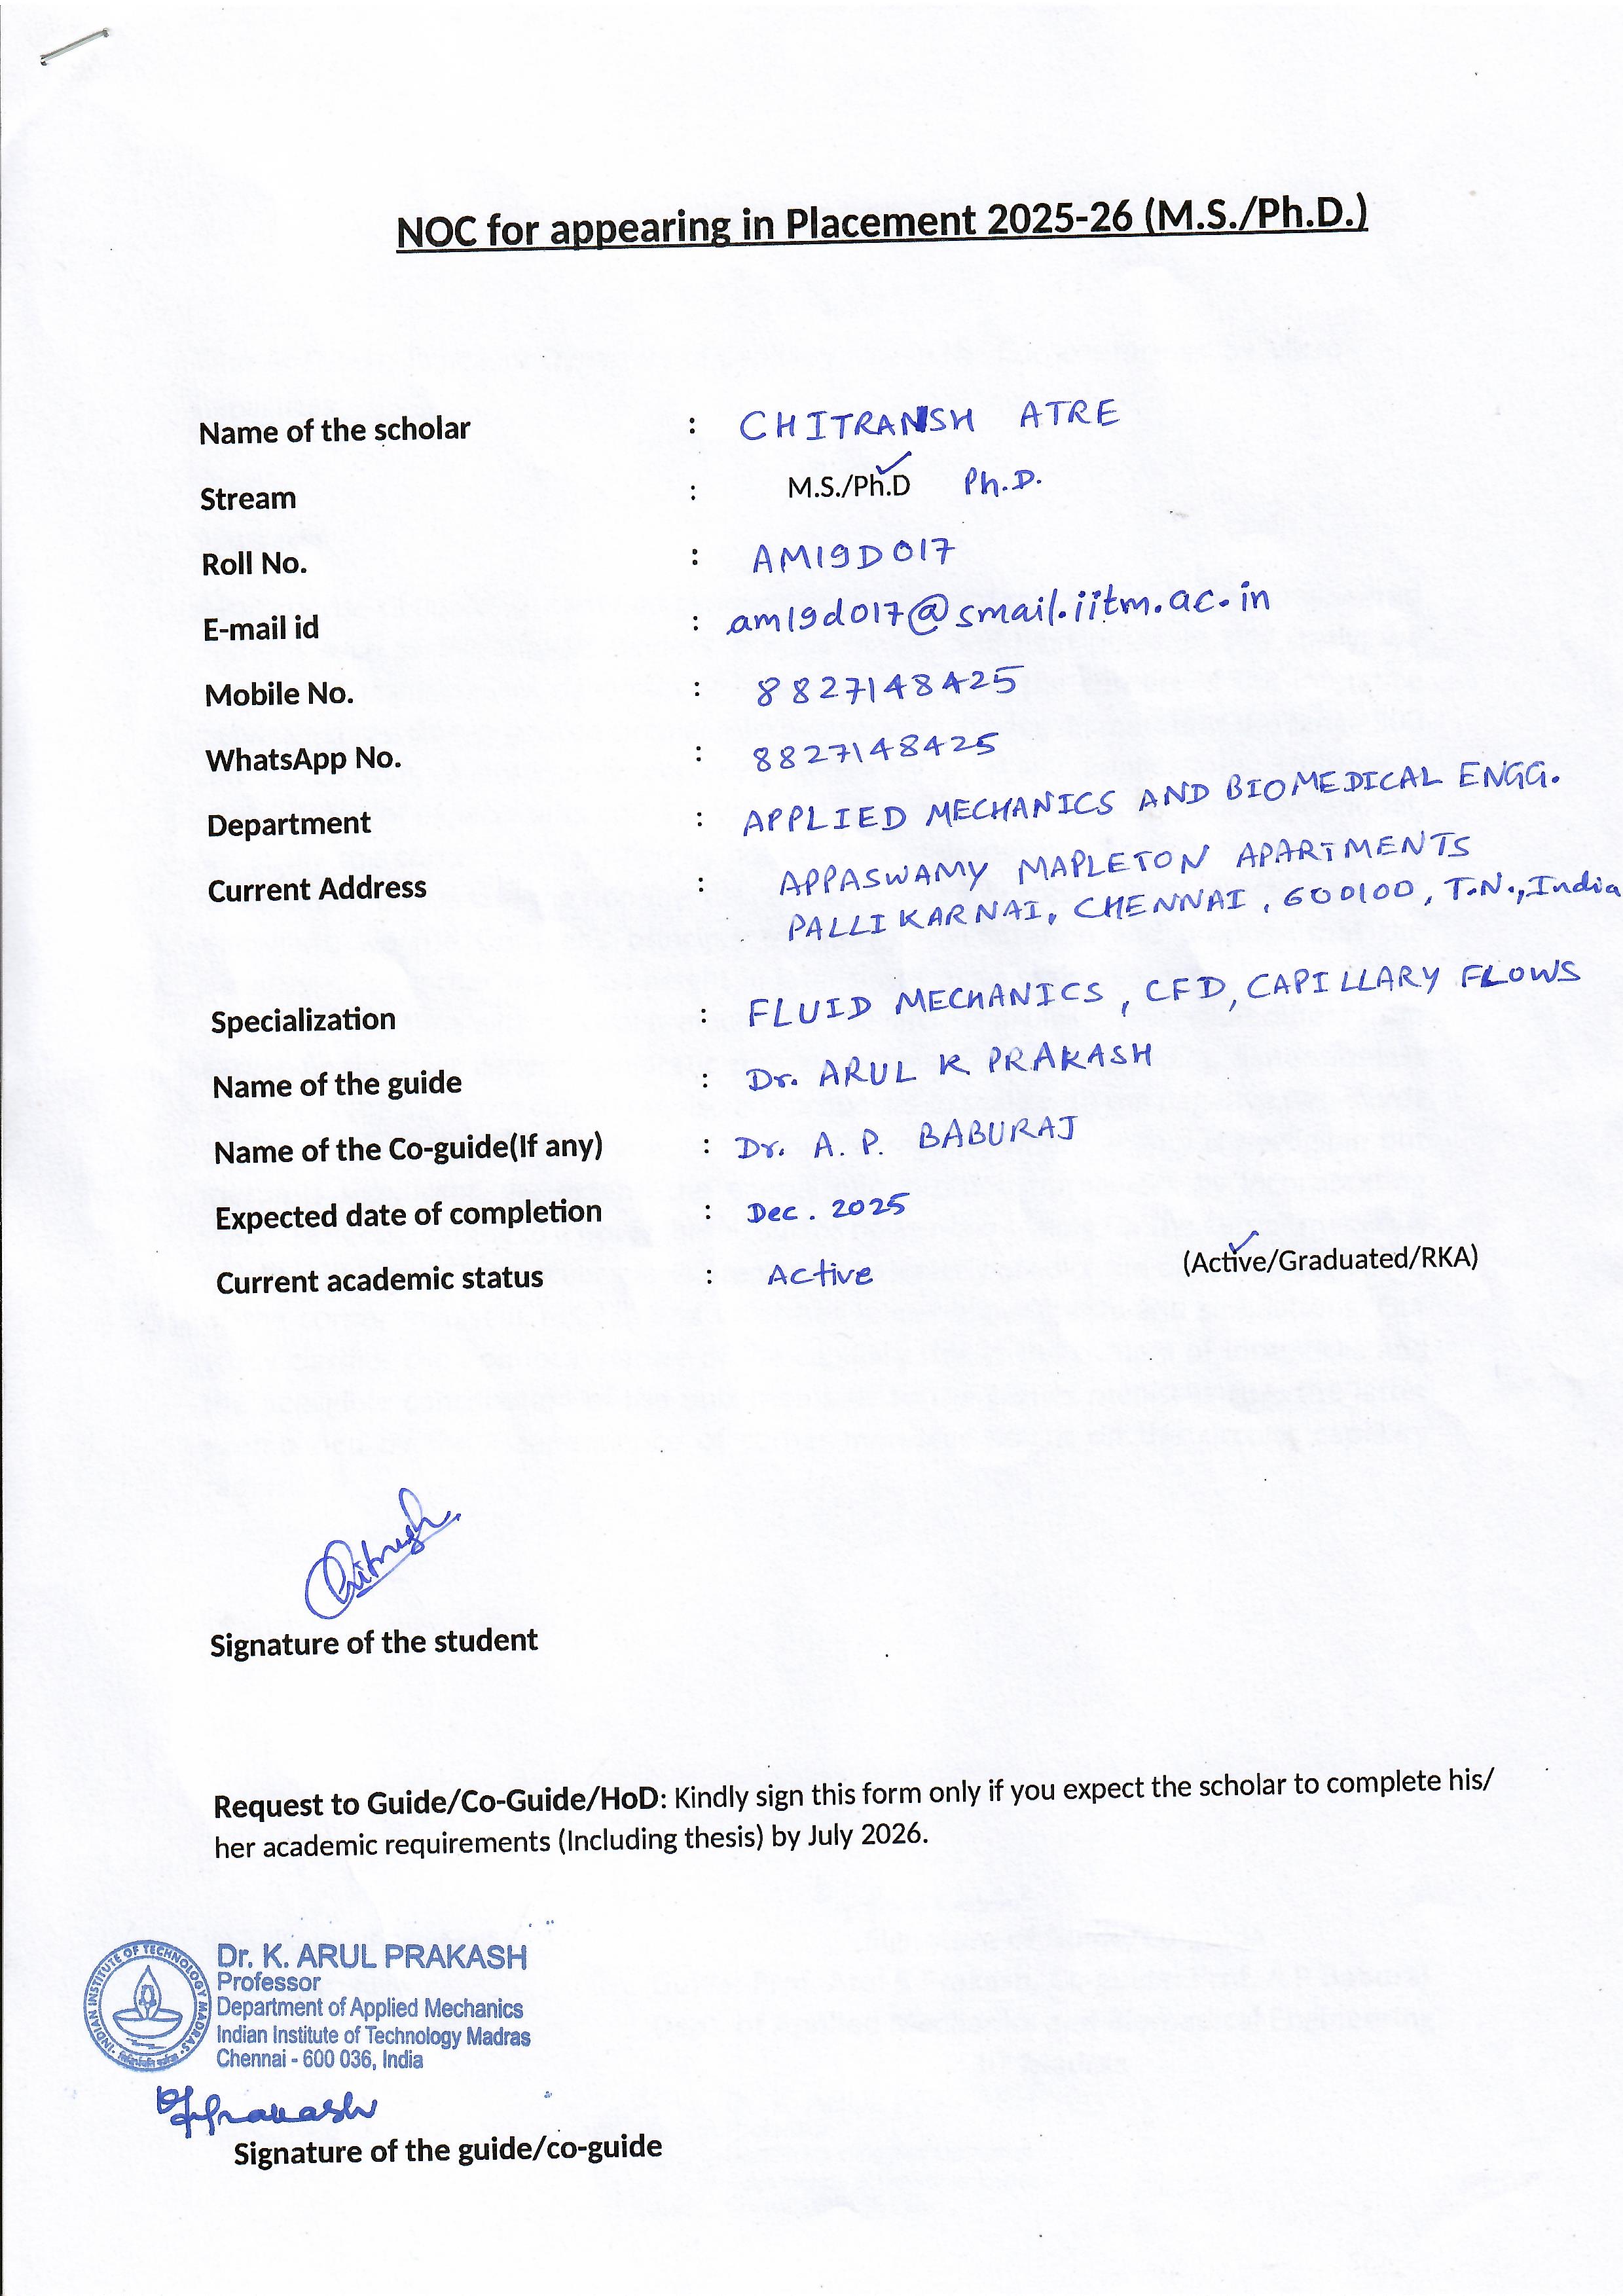 NOC for appearing in Placement 2025-26 (M.S./Ph.D.)
Name of the scholar : CHITRANSH ATRE
Stream : M.S./Ph.D Ph.D.
Roll No. : AM19D017
E-mail id : am19d017@smail.iitm.ac.in
Mobile No. : 8827148425
WhatsApp No. : 8827148425
Department : APPLIED MECHANICS AND BIOMEDICAL ENGG.
Current Address : APPASWAMY MAPLETON APARTMENTS
PALLIKARNAI, CHENNAI, 600100, T.N., India
Specialization : FLUID MECHANICS, CFD, CAPILLARY FLOWS
Name of the guide : Dr. ARUL K PRAKASH
Name of the Co-guide(If any) : Dr. A. P. BABURAJ
Expected date of completion : Dec. 2025
Current academic status : Active (Active/Graduated/RKA)
Chitransh
Signature of the student
Request to Guide/Co-Guide/HoD: Kindly sign this form only if you expect the scholar to complete his/
her academic requirements (Including thesis) by July 2026.
INDIAN INSTITUTE OF TECHNOLOGY MADRAS
Dr. K. ARUL PRAKASH
Professor
Department of Applied Mechanics
Indian Institute of Technology Madras
Chennai - 600 036, India
Signature of the guide/co-guide